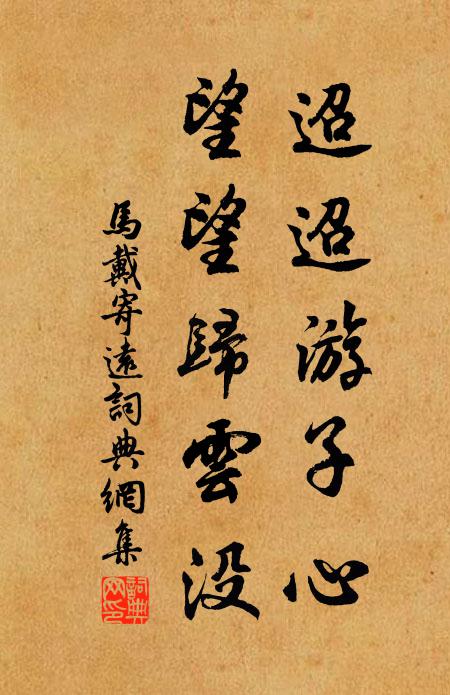 迢迢游子心
望望歸雲没
馬戴寄遠詞典網集
詞典网印